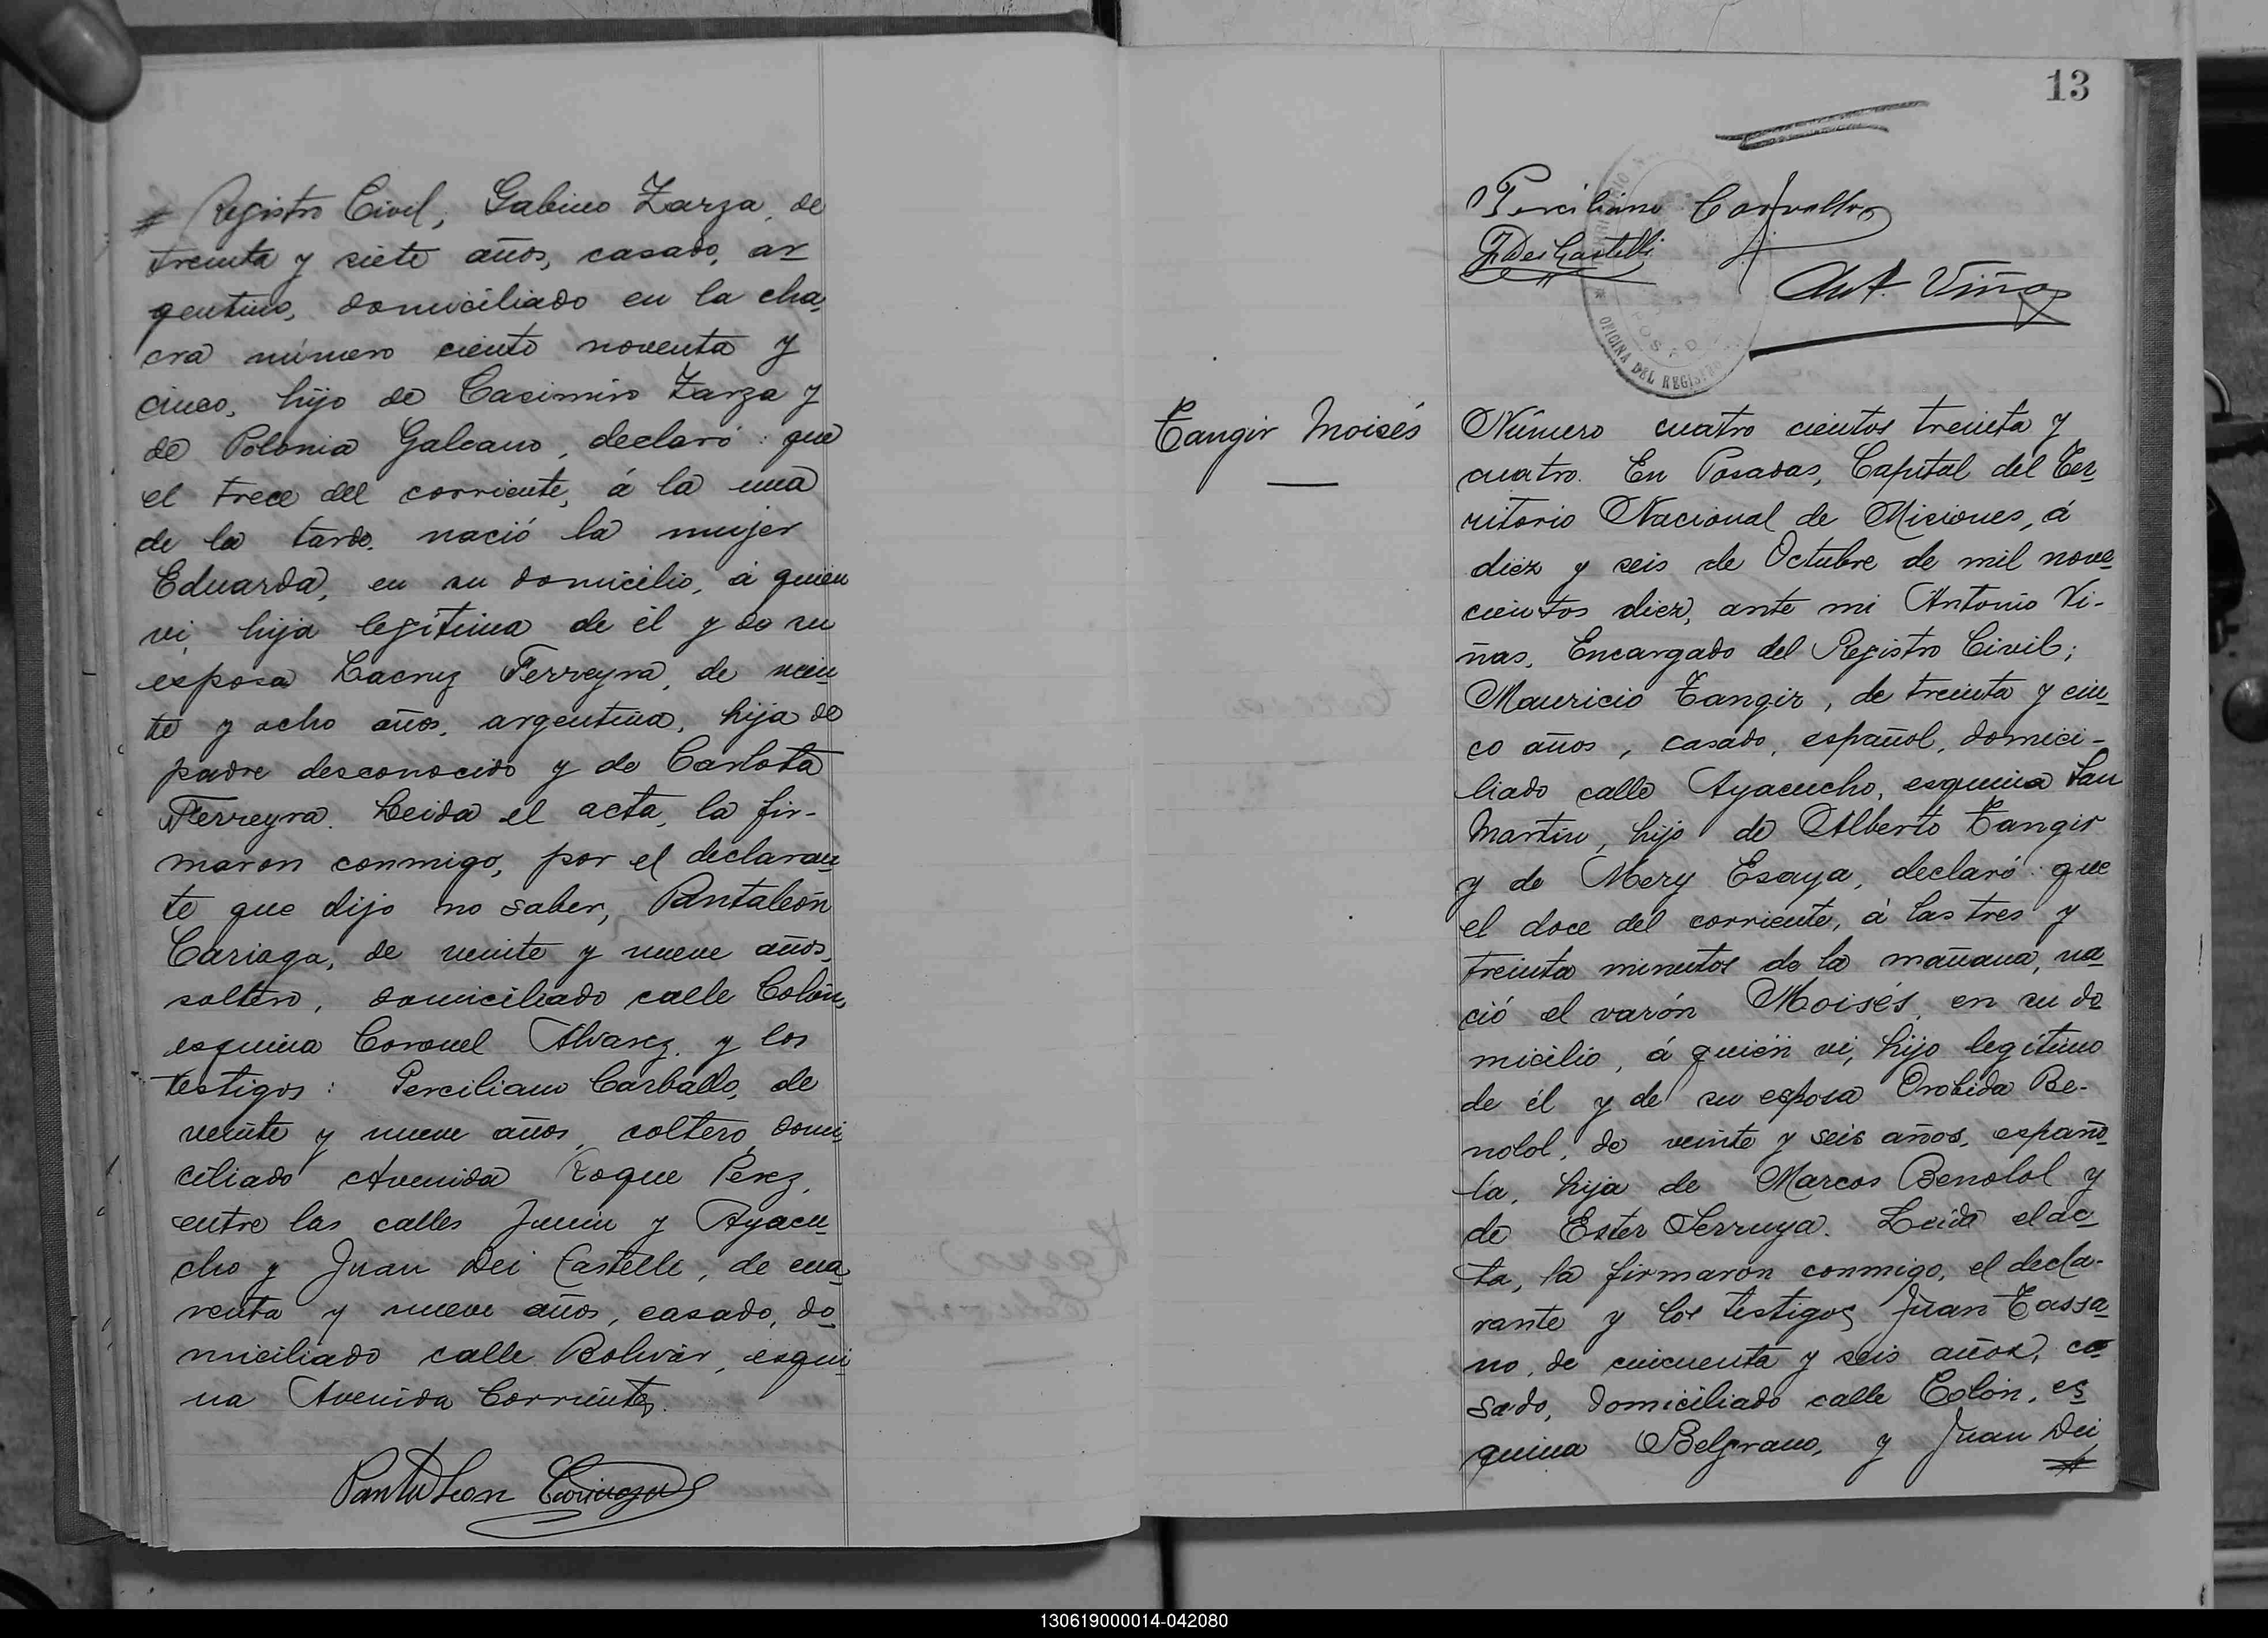 Registro Civil, Gabino Zarza, de
treinta y siete años, casado, ar
gentino, domiciliado en la cha
cra número ciento noventa y
cinco, hijo de Casimiro Zarza y
de Polonia Galeano, declaró: que
el trece del corriente, á la una
de la tarde, nació la mujer
Eduarda, en su domicilio, á quien
vi, hija legítima de él y de su
esposa Lacruz Ferreyra, de vein
te y ocho años, argentina, hija de
padre desconocido y de Carlota
Ferreyra. Leida el acta, la fir-
maron conmigo, por el declaran
te que dijo no saber, Pantaleón
Cariaga, de veinte y nueve años,
soltero, domiciliado calle Colón,
esquina Coronel Alvarez, y los
testigos: Perciliano Carballo, de
veinte y nueve años, soltero, domi
ciliado Avenida Roque Pérez,
entre las calles Junin y Ayacu
cho y Juan Dei Castelli, de cua
renta y nueve años, casado, do
miciliado calle Bolivar, esqui
na Avenida Corrientes.
Pantaleon Cariaga
13
Perciliano Carvallo
J Dei Castelli
Ant. Viñas
OFICINA DEL REGISTRO
POSADAS
Tangir Moisés
Número cuatro cientos treinta y
cuatro. En Posadas, Capital del Ter
ritorio Nacional de Misiones, á
diez y seis de Octubre de mil nove
cientos diez, ante mi Antonio Vi-
ñas, Encargado del Registro Civil;
Mauricio Tangir, de treinta y cin
co años, casado, español, domici-
liado calle Ayacucho, esquina San
Martin, hijo de Alberto Tangir
y de Mery Esaya, declaró: que
el doce del corriente, á las tres y
treinta minutos de la mañana, na
ció el varón Moisés, en su do
micilio, á quién vi, hijo legítimo
de él y de su esposa Orobida Be-
nolol, de veinte y seis años, españo
la, hija de Marcos Benolol y
de Ester Serruya. Leida el ac
ta, la firmaron conmigo, el decla-
rante y los testigos Juan Tassa
no, de cincuenta y seis años, ca
sado, domiciliado calle Colón, es
quina Belgrano, y Juan Dei
130619000014-042080